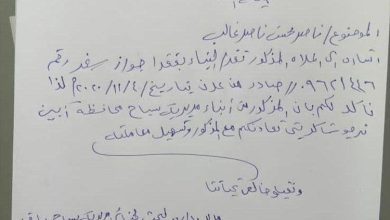 الموضوع / ناصر محسن ناصر غالب
إشارة إلى المذكور تقدم إلينا بفقد جواز سفر رقم
٠٩٦٢١٤٤٦ // صادر من عدن بتاريخ ٢٠٢٠/١٢/٤م لذا
نأكد لكم بأن المذكور من أبناء مديرية سباح محافظة أبين
نرجو شاكرين تعاونكم مع المذكور وتسهيل معاملته
وتقبلوا خالص تحياتنا
مديرية سباح